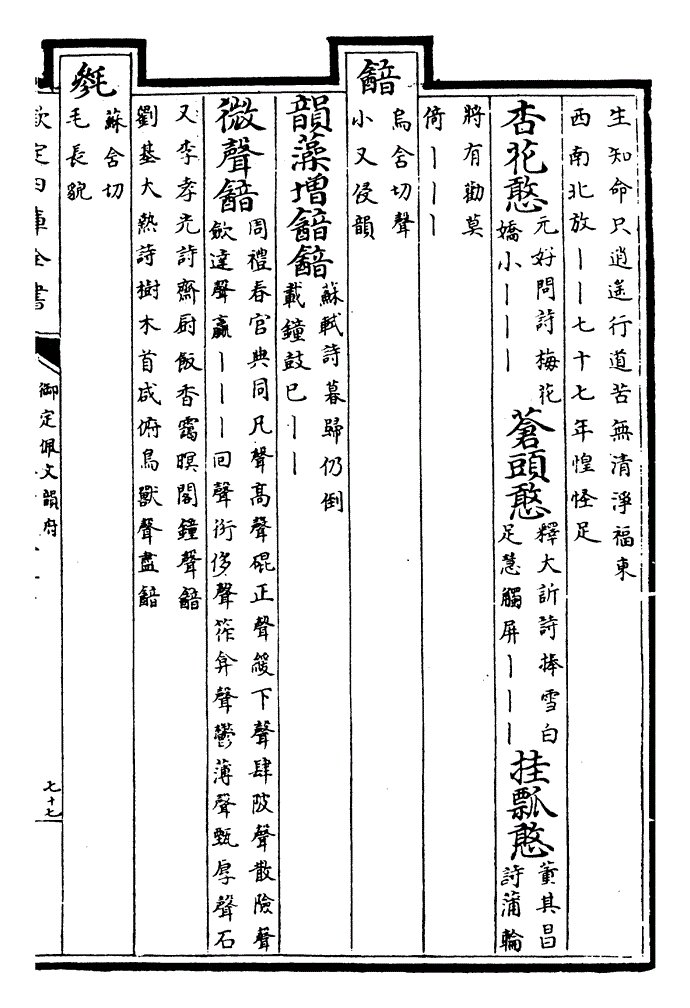 生知命只逍遙行道苦無清淨福東
西南北放丨丨七十七年惶怪足
杏花憨
元好問詩梅花
嬌小丨丨丨
蒼頭憨
釋大訢詩捧雪白
足慧觸屏丨丨丨
挂瓢憨
董其昌
詩蒲輪
將有勸莫
倚丨丨丨
韽
烏含切聲
小又侵韻
韻藻增韽韽
蘇軾詩暮歸仍倒
載鐘鼓已丨丨
微聲韽
周禮春官典同凡聲高聲䃂正聲緩下聲肆陂聲散險聲
歛達聲贏丨丨丨回聲衍侈聲筰弇聲鬱薄聲甄厚聲石
又李孝光詩齋厨飯香靄暝閣鐘聲韽
劉基大熱詩樹木首咸俯鳥獸聲盡韽
毿
蘇含切
毛長貌
欽定四庫全書
御定佩文韻府
七十七